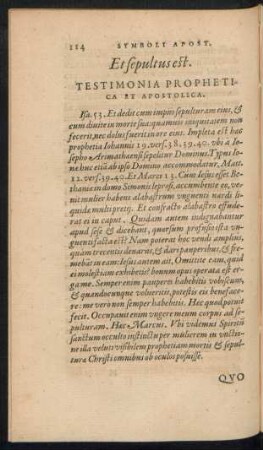 114 SYMBOLI APOST.
Et sepultus est.
TESTIMONIA PROPHETI-
CA ET APOSTOLICA.
Isa. 53. Et dedit cum impiis sepulturam eius, &
cum diuite in morte sua: quamuis iniquitatem non
fecerit, nec dolus fuerit in ore eius. Impleta est hæc
prophetia Iohannis 19. vers. 38. 39. 40. vbi a Io-
sepho Arimathaensi sepelitur Dominus. Typus Io-
næ huc etiā ab ipso Domino accommodatur, Matt.
12. vers. 39. 40. Et Marci 13. Cum Iesus esset Be-
thaniæ in domo Simonis leprosi, accumbente eo, ve-
nit mulier habens alabastrum vnguenti nardi li-
quidæ multi pretij. Et confracto alabastro effude-
rat ei in caput. Quidam autem indignabantur
apud sese & dicebant, quorsum profusio ista vn-
guenti facta est? Nam poterat hoc vendi amplius,
quam trecentis denariis, & dari pauperibus, & fre-
mebāt in eam: Iesus autem ait, Omittite eam, quid
ei molestiam exhibetis? bonum opus operata est er-
ga me. Semper enim pauperes habebitis vobiscum,
& quandocunque volueritis, potestis eis beneface-
re: me vero non semper habebitis. Hæc quod potuit
fecit. Occupauit enim vngere meum corpus ad se-
pulturam. Hæc Marcus. Vbi videmus Spiritū
sanctum occulto instinctu per mulierem in vnctio-
ne illa veluti visibilem prophetiam mortis & sepul-
turæ Christi omnibus ob oculos posuisse.
QVO